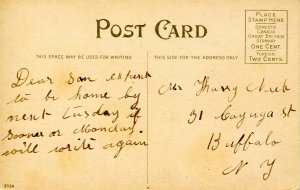 POST CARD
THIS SPACE MAY BE USED FOR WRITING
THIS SIDE FOR THE ADDRESS ONLY
PLACE
STAMP HERE
DOMESTIC
CANADA
GREAT BRITAIN
GERMANY
ONE CENT.
FOREIGN
TWO CENTS.
Dear Son expect
to be home by
next Tusday if
Sooner or Monday.
will write again
Harry
31 Cayuga St
Buffalo
N Y